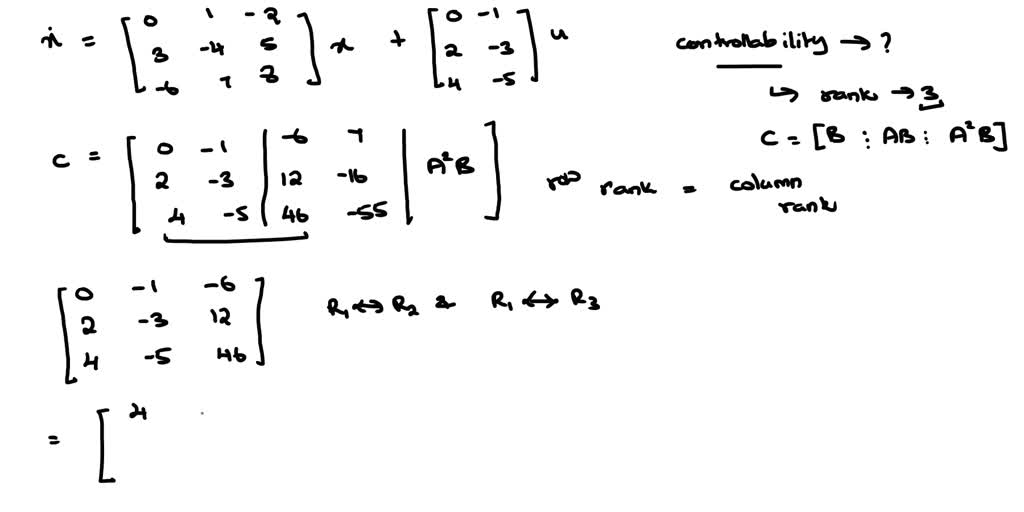 ẋ = [ 0 1 -2 ; 3 -4 5 ; -6 7 8 ] x + [ 0 -1 ; 2 -3 ; 4 -5 ] u
controllability → ?
↳ rank → 3
C = [B ⋮ AB ⋮ A²B]
c = [ 0 -1 | -6 7 | A²B ; 2 -3 | 12 -16 | ; 4 -5 | 46 -55 | ]
row rank = column
rank
[ 0 -1 -6 ; 2 -3 12 ; 4 -5 46 ] R₁ ↔ R₂ & R₁ ↔ R₃
= [ 4